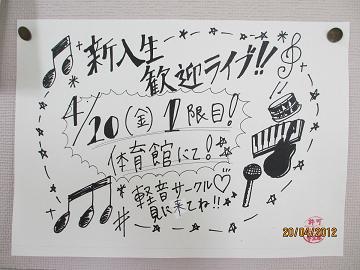 新入生
歓迎ライブ!!
4/20(金)1限目!
体育館にて!
軽音サークル♡
見に来てね!!
許可
20/04/2012